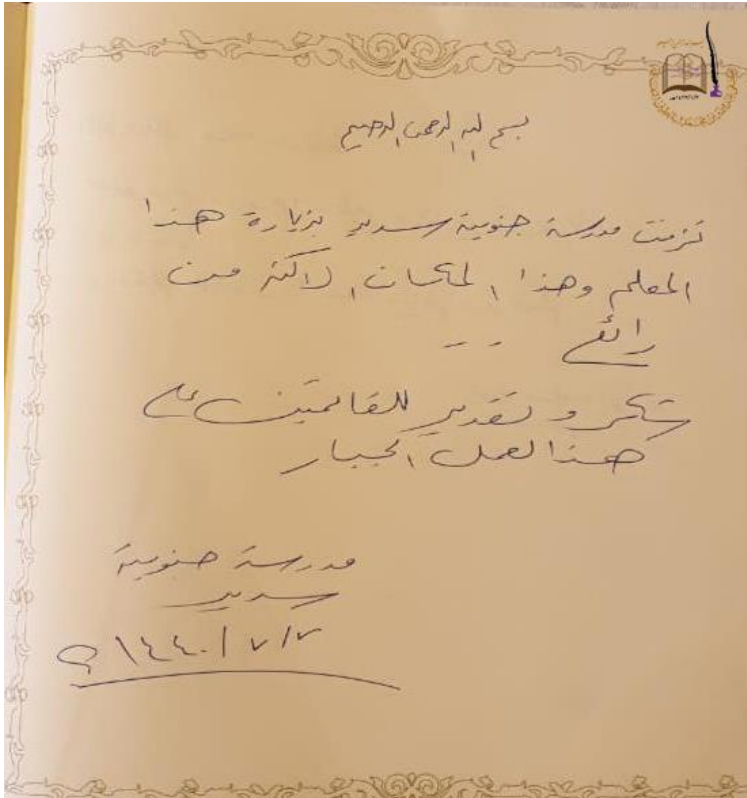 بسم الله الرحمن الرحيم
تزينت مدرسة جنوبية سدير بزيارة هذا
المعلم وهذا المكان الأكثر من
رائع - -
شكر وتقدير للقائمين على
هذا العمل الجبار
مدرسة جنوبية
سدير
١٤٤٠/٧/٢